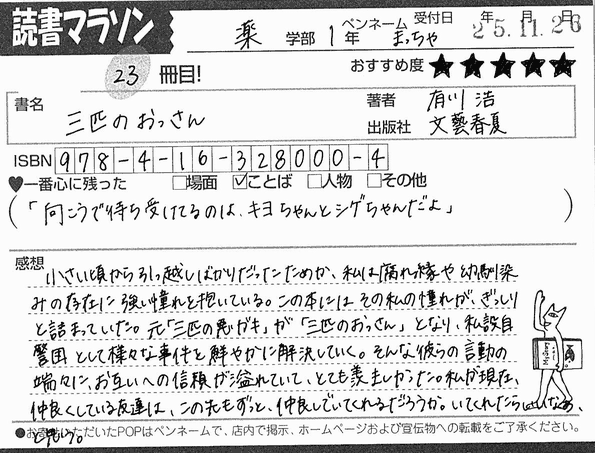 読書マラソン
薬 学部 1年 ペンネーム まっちゃ 受付日 25年11月26日
23 冊目!
おすすめ度 ★★★★★
書名 三匹のおっさん
著者 有川 浩
出版社 文藝春夏
ISBN 978-4-16-328000-4
♥一番心に残った □場面 ☑ことば □人物 □その他
(「向こうで待ち受けてるのは、キヨちゃんとシゲちゃんだよ」)
感想
小さい頃から引っ越しばかりだったためか、私は腐れ縁や幼馴染
みの存在に強い憧れを抱いている。この本にはその私の憧れが、ぎっしり
と詰まっていた。元「三匹の悪ガキ」が「三匹のおっさん」となり、私設自
警団として様々な事件を鮮やかに解決していく。そんな彼らの言動の
端々に、お互いへの信頼が溢れていて、とても羨ましかった。私が現在、
仲良くしている友達は、この先もずっと、仲良しでいてくれるだろうか。いてくれたらいいなあ、
と思う。
●お寄せいただいたPOPはペンネームで、店内で掲示、ホームページおよび宣伝物への転載をご了承ください。